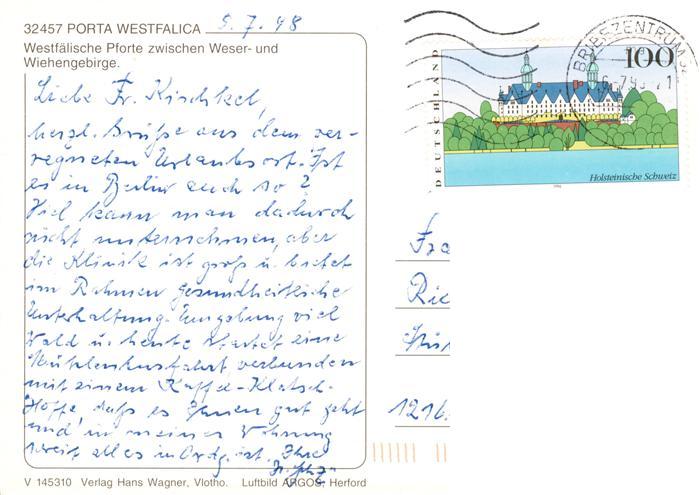 32457 PORTA WESTFALICA
5.7.98
Westfälische Pforte zwischen Weser- und
Wiehengebirge.
Liebe Fr. Kischkel,
herzl. Grüße aus dem ver-
regneten Urlaubsort. Ist
es in Berlin auch so?
Viel kann man dadurch
nicht unternehmen, aber
die Klinik ist groß u. bietet
im Rahmen gesundheitliche
Unterhaltung. Umgebung viel
Wald u. heute startet eine
Mühlenkusfahrt verbunden
mit einem Kaffee-Klatsch.
Hoffe, daß es Ihnen gut geht
und in meiner Wohnung
weit alles in Ordg. ist. Ihre
V 145310 Verlag Hans Wagner, Vlotho. Luftbild ARGOS, Herford
DEUTSCHLAND
100
Holsteinische Schweiz
BRIEFZENTRUM 32
Fra
Rie